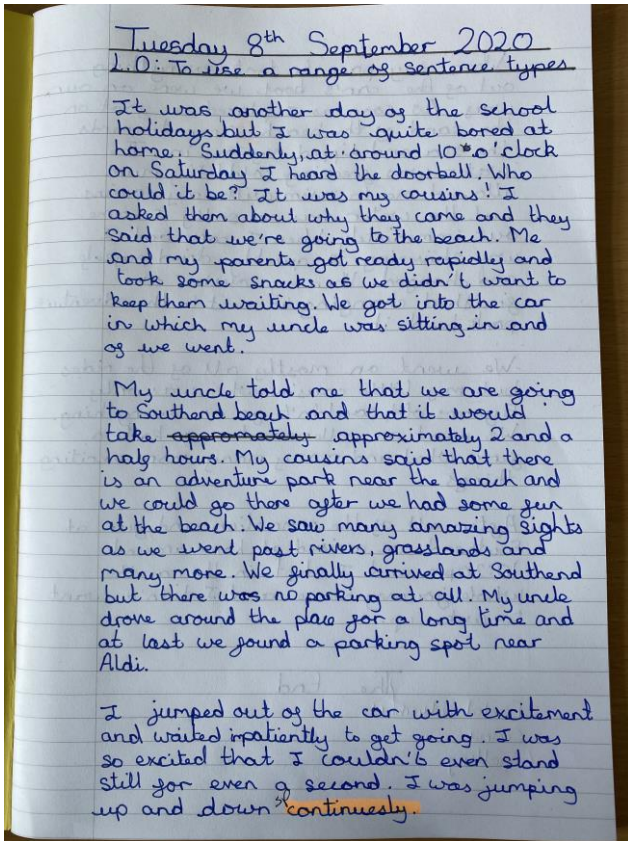 Tuesday 8th September 2020
L.O: To use a range of sentence types
It was another day of the school
holidays but I was quite bored at
home. Suddenly, at around 10 o'clock
on Saturday I heard the doorbell. Who
could it be? It was my cousins! I
asked them about why they came and they
said that we're going to the beach. Me
and my parents got ready rapidly and
took some snacks as we didn't want to
keep them waiting. We got into the car
in which my uncle was sitting in and
of we went.
My uncle told me that we are going
to Southend beach and that it would
take appromately approximately 2 and a
half hours. My cousins said that there
is an adventure park near the beach and
we could go there after we had some fun
at the beach. We saw many amazing sights
as we went past rivers, grasslands and
many more. We finally arrived at Southend
but there was no parking at all. My uncle
drove around the place for a long time and
at last we found a parking spot near
Aldi.
I jumped out of the car with excitement
and waited inpatiently to get going. I was
so excited that I couldn't even stand
still for even a second. I was jumping
up and down sp continuesly.